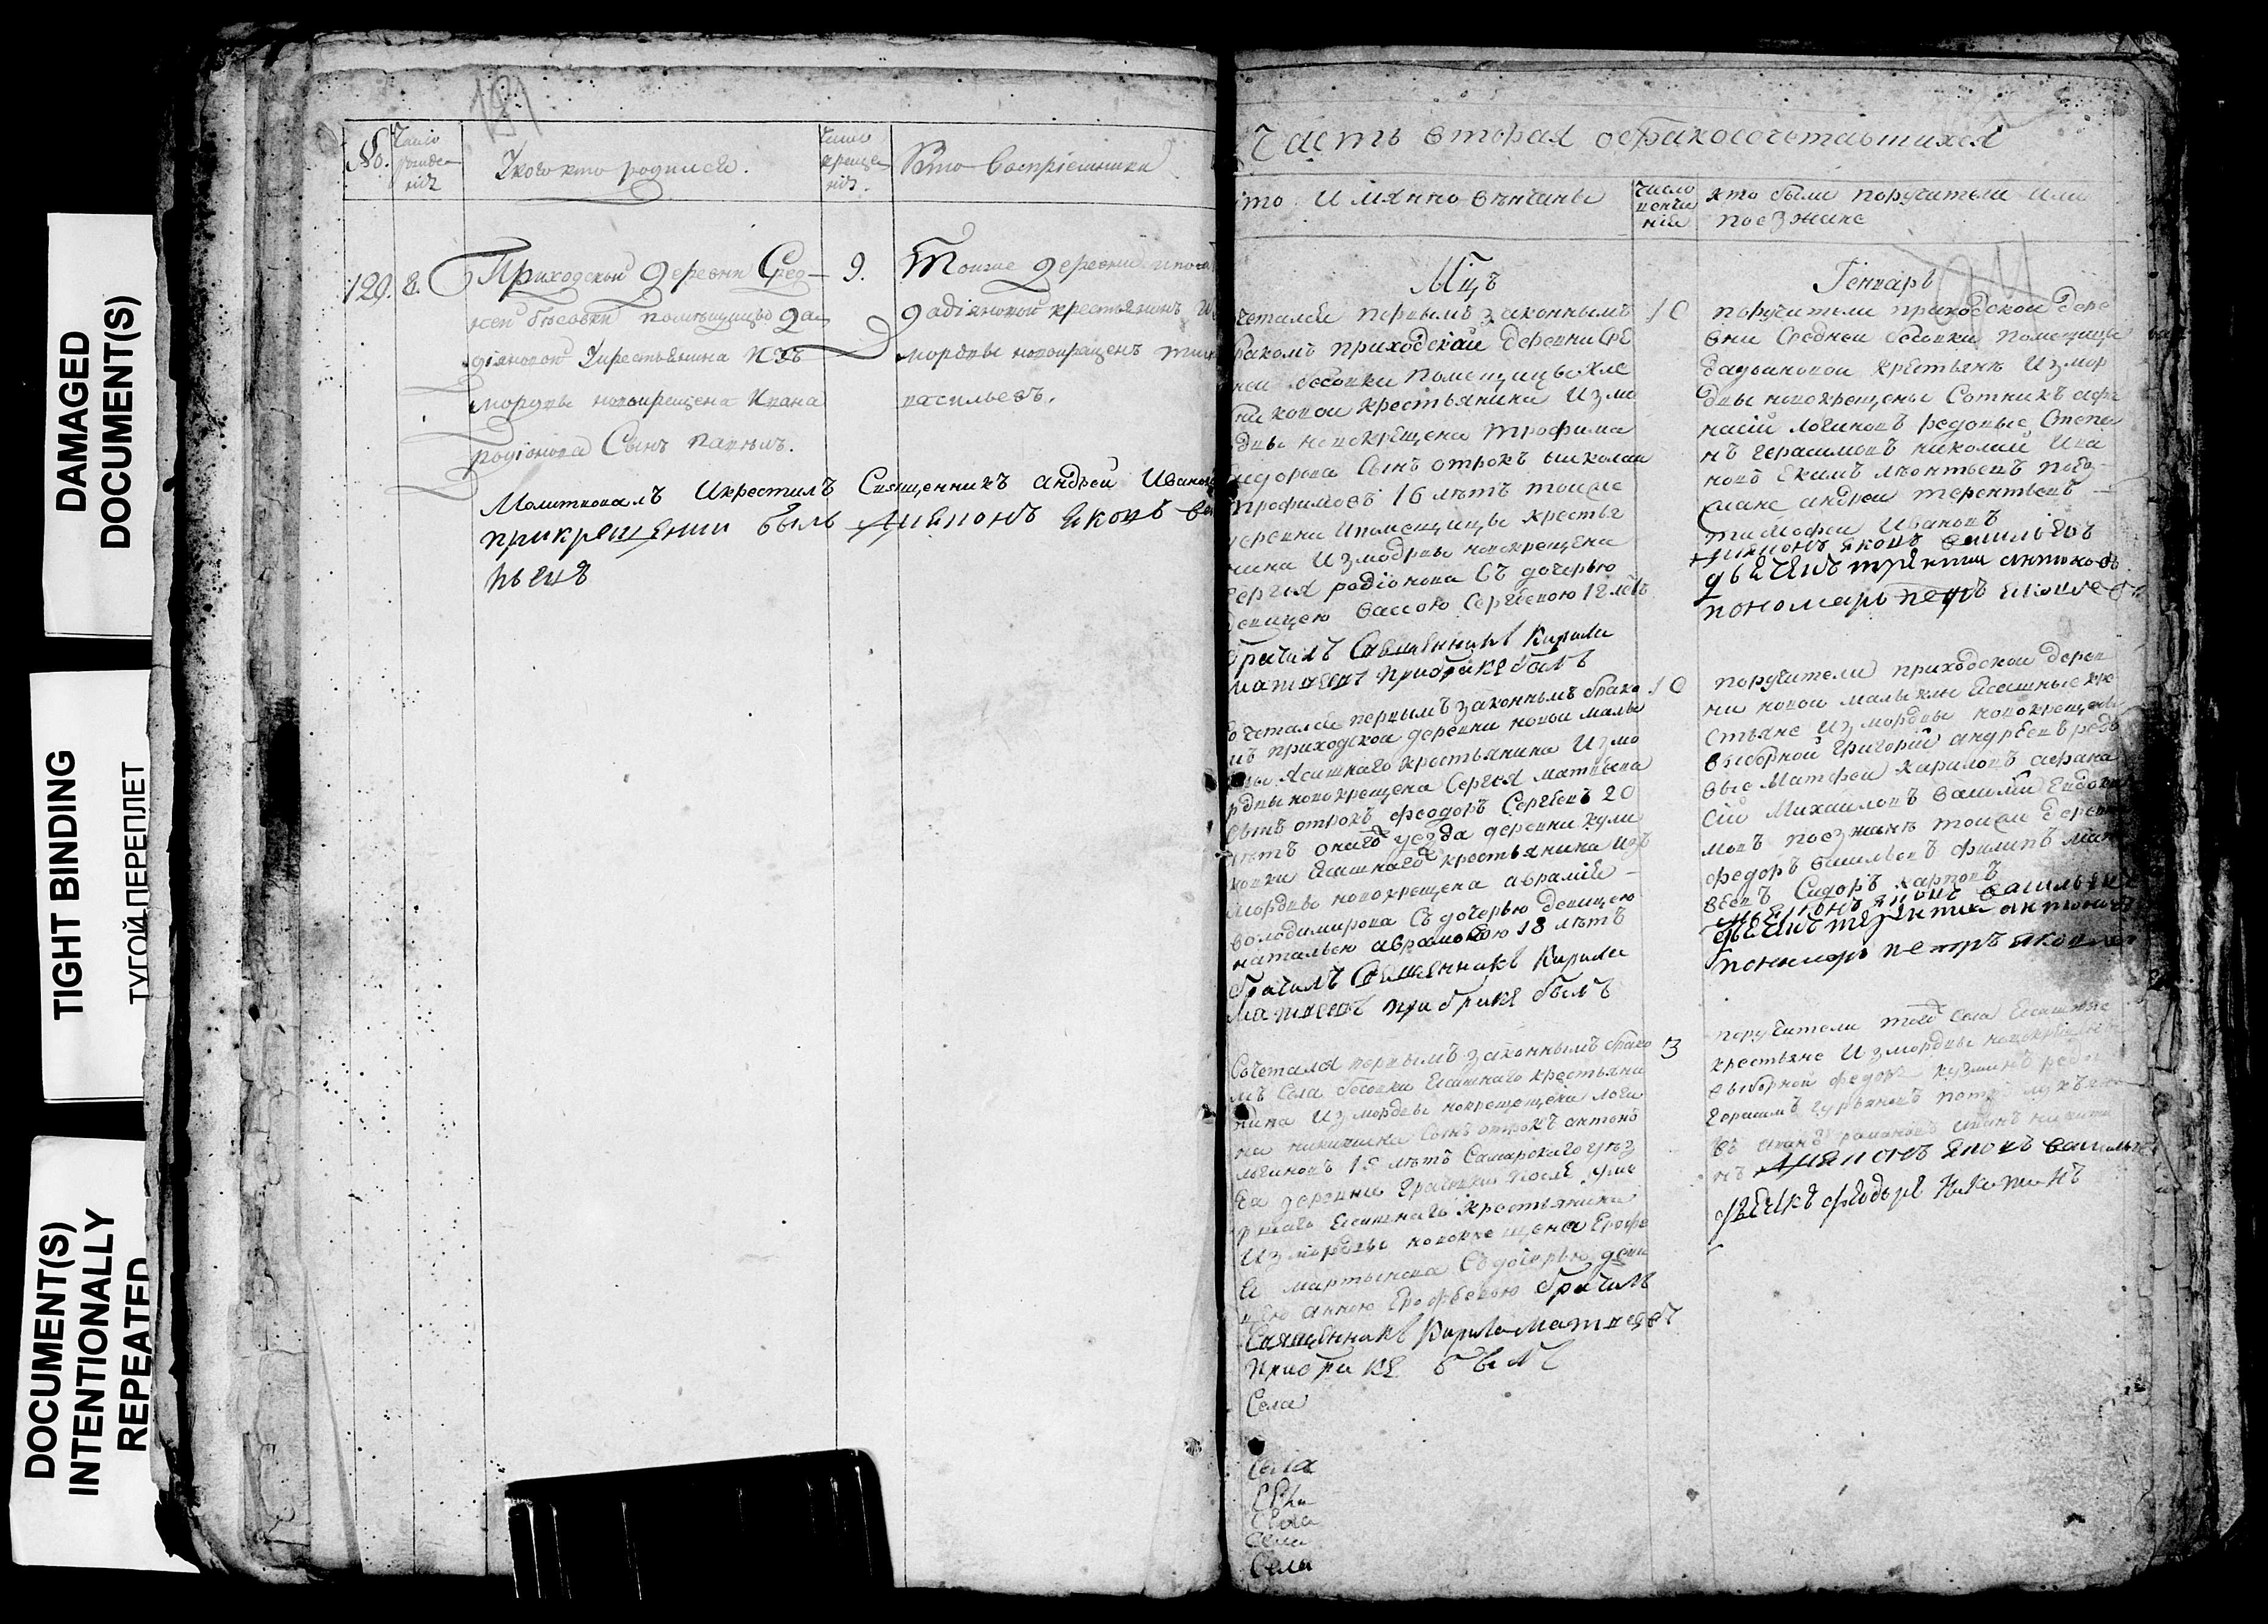 DAMAGED
DOCUMENT(S)
TIGHT BINDING
ТУГОЙ ПЕРЕПЛЕТ
DOCUMENT(S)
INTENTIONALLY
REPEATED
191
№.
Число
рожде
нія
У кого кто родился.
Число
креще
нія.
Кто восприемники
129. 8.
Приходской деревни Сред-
ней бѣсовки помѣщицы Да
діяновой Укрестьянина изъ
мордвы новокрещена Ивана
Родіонова Сынъ павелъ.
9.
Тоиже деревни
дадіяновой крестьянинъ
мордвы новокрещенъ
васильевъ.
Молитвовалъ Икрестилъ Священникъ андрей Иванов
прикрещении былъ дияконъ яковъ
вьевъ
Часть вторая обракосочетавшихся
имянно венчаны
число
венча
нія
кто были поручители или
поезжане
Мцъ
Генварь
четался первымъ законнымъ
10
ракомъ приходской деревни Сре
ней бесовки Помещицы
новой крестьянина Измо
двы новокрещена трофима
Сидорова Сынъ отрокъ николай
трофимовъ 16 лѣтъ тоиже
деревни ипомещицы крестья
нина Измордвы новокрещена
Сергея родіонова Съ дочерью
девицею вассою Сергеевою 18 летъ
брачилъ Священникъ Кирила
матвеевъ прибраке былъ
поручители приходской дере
вни Средней бесовки Помещицы
дадьяновой крестьяне Измор
двы новокрещены Сотникъ афо
насій логиновъ рядовые Степа
нъ герасимовъ николай Ива
новъ Екимъ леонтьевъ поез
жане андрей терентьевъ
тимофей Ивановъ
дияконъ яковъ васильевъ
дьячекъ терентий антоновъ
пономарь петръ
Сочетался первымъ законнымъ брако
10
мъ приходской деревни новой малы
клы Ясашнаго крестьянина Измо
рдвы новокрещена Сергея матвеева
Сынъ отрокъ феодоръ Сергеевъ 20
летъ онаго уезда деревни кули
ковки Ясашнаго крестьянина изъ
мордвы новокрещена авраміе
володимирова Съ дочерью девицею
натальею аврамовою 18 лѣтъ
брачилъ Священникъ Кирила
матвеевъ прибраке былъ
поручители приходской дерев
ни новой малыклы Ясашные кре
стьяне Измордвы новокрещены
выборной григорий андреевъ рядо
вые Матфей кириловъ афана
сій Михайловъ василий Евдоки
мовъ поезжане тоиже деревни
федоръ васильевъ филипъ мат
веевъ Сидоръ карповъ
дияконъ яковъ васильевъ
дьячекъ терентий антоновъ
пономарь петръ яковлев
Сочетался первымъ законнымъ брако
13
мъ Села бесовки Ясашнаго крестьяни
нина Измордвы новокрещена логи
на никитина Сынъ отрокъ антонъ
логиновъ 15 лѣтъ Самарского уез
да деревни грачевки после уме
ршаго Ясашнаго крестьянина
Измордвы новокрещена Ерофе
я мартынова Съ дочерью деви
цею анною Ерофеевою брачилъ
Священникъ Кирила матвеевъ
прибраке былъ
поручители того Села Ясашные
крестьяне Измордвы новокрещены
выборной федоръ кузминъ рядо
герасимъ гурьяновъ петръ
дияконъ яковъ василье
дьячекъ феодоръ Никитинъ
Села
Села
Села
Села
Села
Села